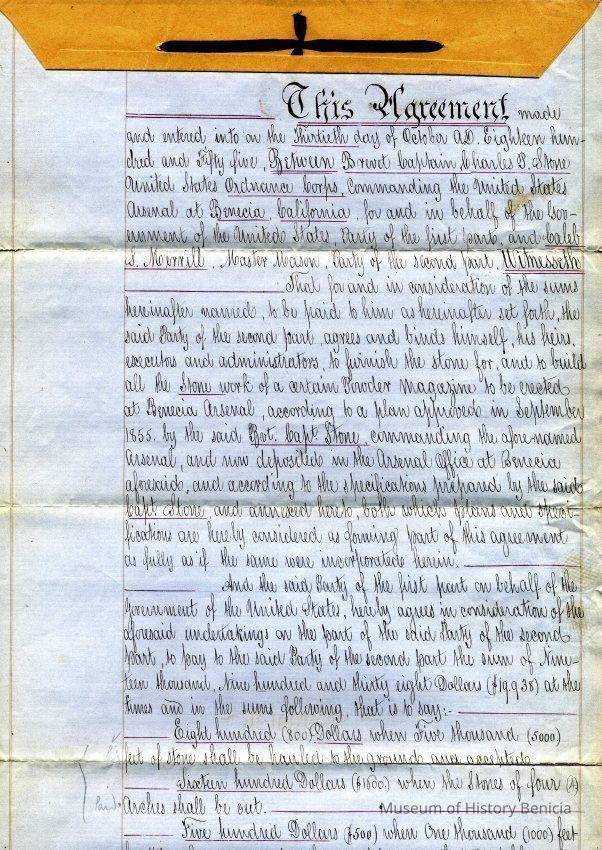 This Agreement made
and entered into on the Thirtieth day of October A.D. Eighteen hun-
dred and Fifty five, Between Brevet Captain Charles P. Stone
United States Ordnance Corps, commanding the United States
Arsenal at Benecia, California, for and in behalf of the Gov-
ernment of the United States, Party of the first part, and Caleb
S. Merrill, Master Mason, Party of the second part, Witnesseth
That for and in consideration of the sums
hereinafter named, to be paid to him as hereinafter set forth, the
said Party of the second part, agrees and binds himself, his heirs,
executors and administrators, to furnish the stone for, and to build
all the Stone work of a certain Powder Magazine to be erected
at Benecia Arsenal, according to a plan approved in September
1855. by the said Bvt. Capt. Stone, commanding the afore-named
Arsenal, and now deposited in the Arsenal Office at Benecia
aforesaid, and according to the specifications prepared by the said
Capt. Stone and annexed hereto, both which plans and specif-
ications are hereby considered as forming part of this agreement
as fully as if the same were incorporated herein.
And the said Party of the first part on behalf of the
Government of the United States, hereby agrees in consideration of the
aforesaid undertakings on the part of the said Party of the second
part, to pay to the said Party of the second part the sum of Nine-
teen thousand, Nine hundred and thirty eight Dollars ($19.938) at the
times and in the sums following, that is to say:-
Eight hundred (800) Dollars when Five thousand (5000)
feet of stone shall be hauled to the ground and accepted.
Sixteen hundred Dollars ($1600) when the Stones of four (4)
Paid
Arches shall be cut.
Museum of History Benicia
Five hundred Dollars ($500) when One thousand (1000) feet